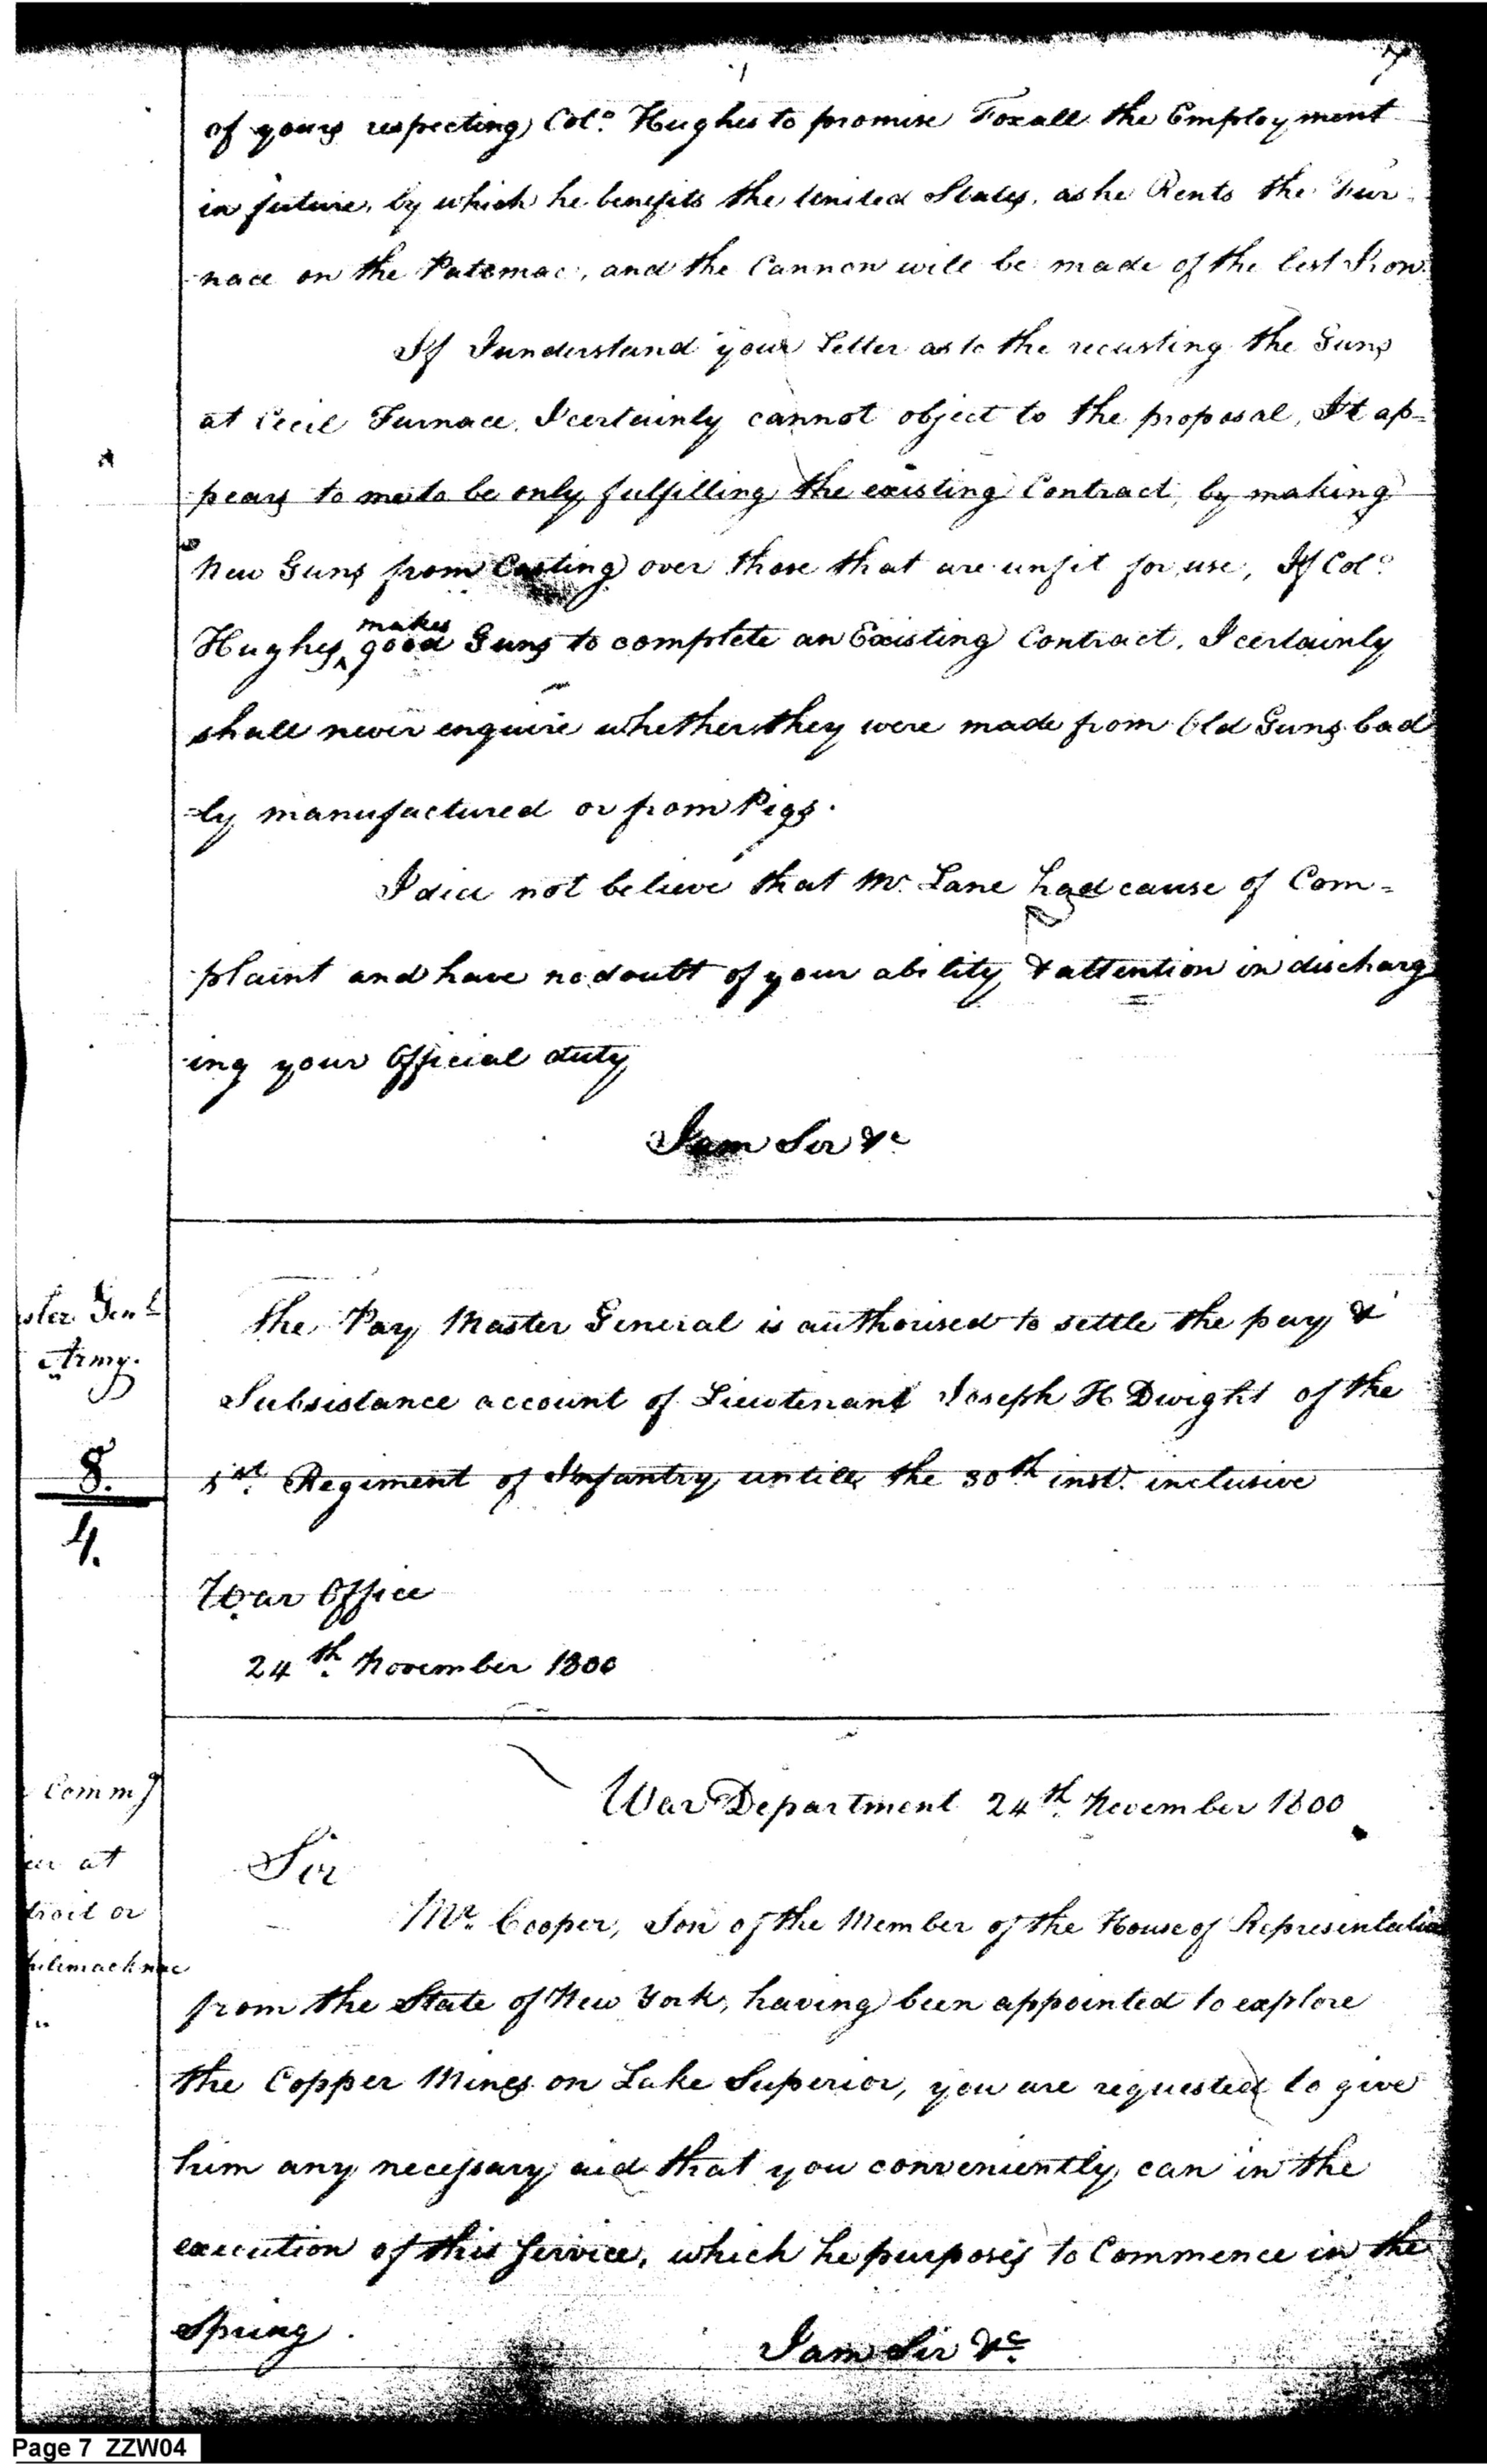 7
of yours respecting Colo. Hughes to promise Foxall the Employment
in future, by which he benefits the United States, as he Rents the Fur-
-nace on the Patomac, and the Cannon will be made of the best Iron.
If I understand your Letter as to the recasting the Guns
at Cecil Furnace. I certainly cannot object to the proposal, It ap=
pears to me to be only fulfilling the existing Contract, by making
New Guns from Casting over those that are unfit for use, If Colo.
makes
Hughes ^ good Guns to complete an Existing Contract. I certainly
shall never enquire whether they were made from Old Guns bad
=ly manufactured or from Pigs.
I did not believe that Mr. Lane had cause of Com=
plaint and have no doubt of your ability & attention in discharg
ing your Official duty
I am Sir &c
ster Genl.
Army.
8.
4.
The Pay Master General is authorised to settle the pay &
Subsistance account of Lieutenant Joseph H Dwight of the
1st. Regiment of Infantry untill the 30th inst. inclusive
War Office
24th. November 1800
Commg
cer at
troit or
hilimacknac
War Department 24th. November 1800
Sir
Mr. Cooper, Son of the Member of the House of Representatives
from the State of New York, having been appointed to explore
the Copper Mines on Lake Superior, you are requested to give
him any necessary aid that you conveniently can in the
execution of this Service, which he purposes to Commence in the
Spring.
I am Sir &c.
Page 7 ZZW04